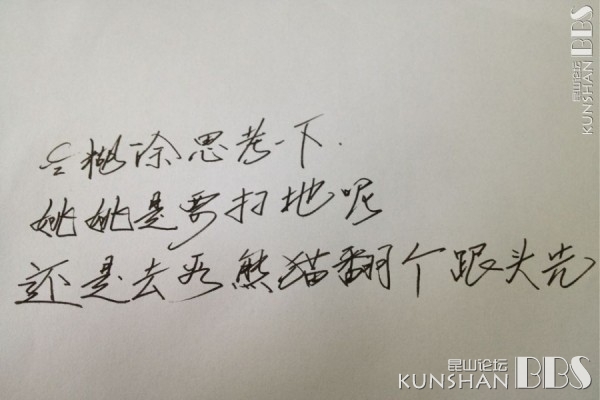 糊涂思考一下.
姚姚是要扫地呢
还是去看熊猫翻个跟头先
昆山论坛
KUNSHAN BBS
昆山论坛
KUNSHAN BBS